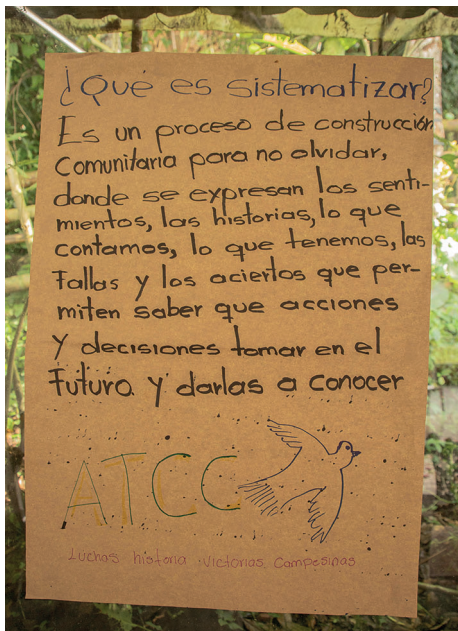 ¿Qué es sistematizar?
Es un proceso de construcción
Comunitaria para no olvidar,
donde se expresan los senti-
mientos, las historias, lo que
contamos, lo que tenemos, las
Fallas y los aciertos que per-
miten saber que acciones
y decisiones tomar en el
Futuro. y darlas a conocer
ATCC
Luchas historia victorias Campesinas